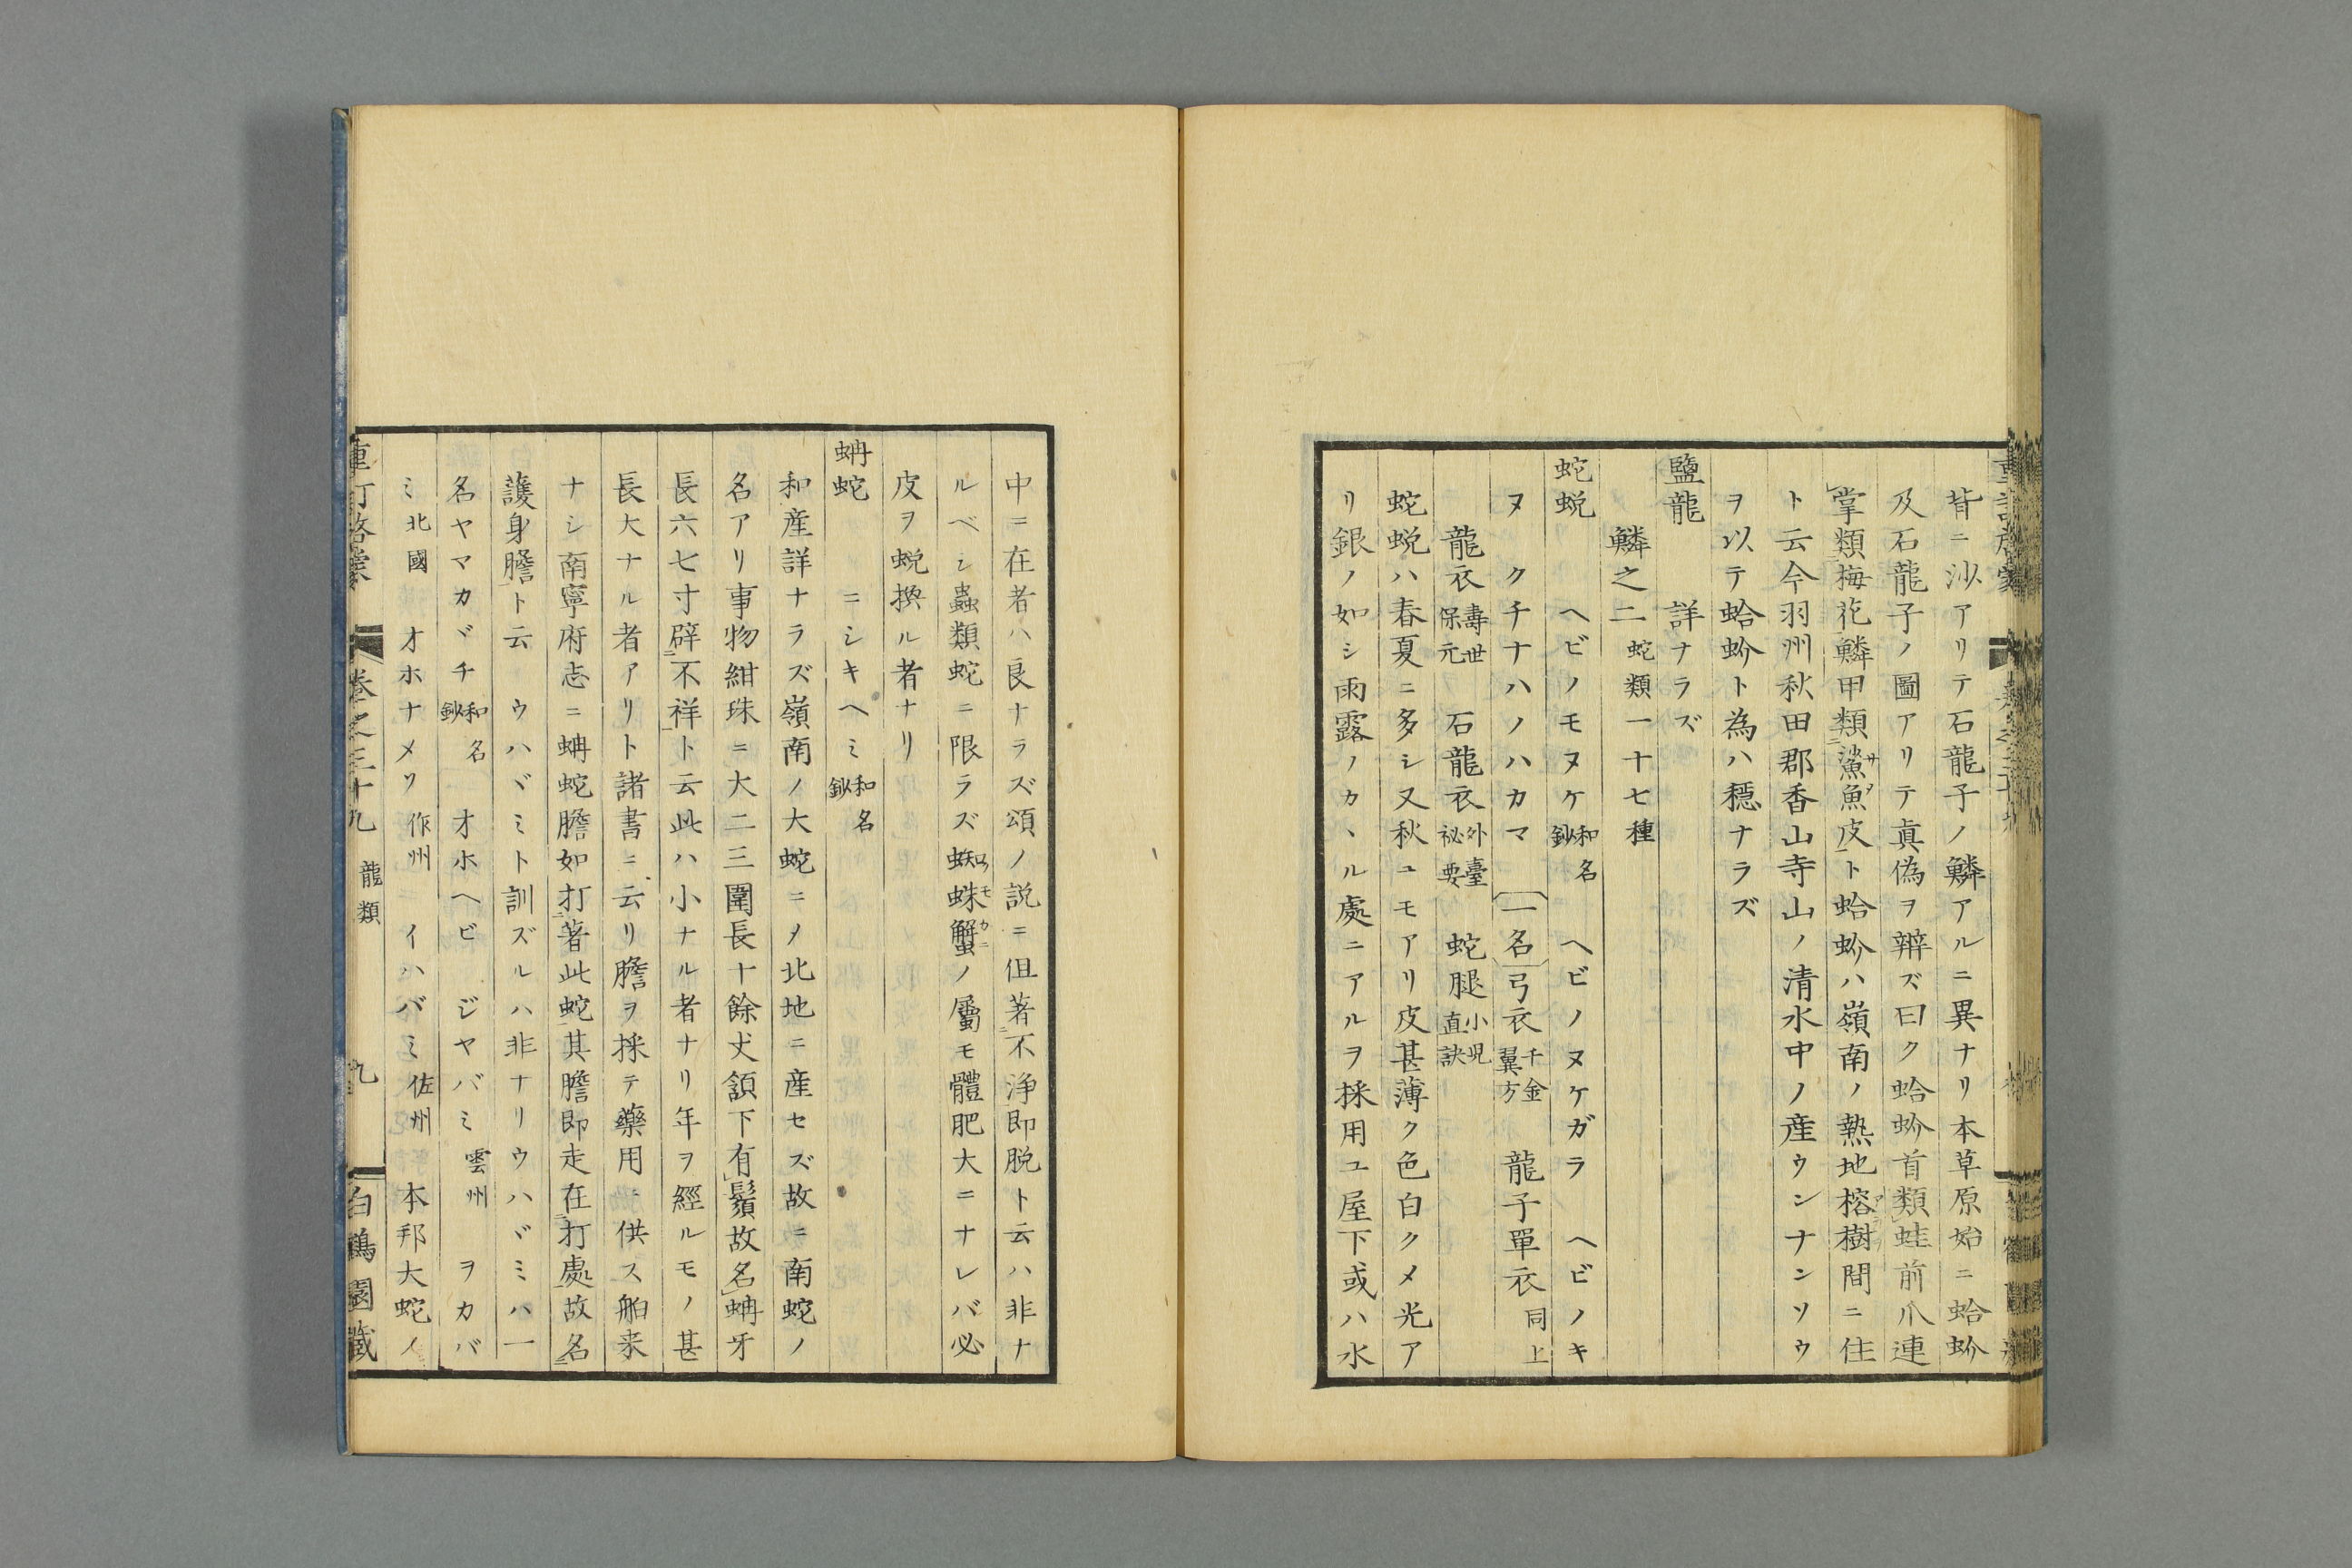 背ニ沙アリテ石龍子ノ鱗アルニ異ナリ本草原始ニ蛤蚧
及石龍子ノ圖アリテ眞偽ヲ辨ズ曰ク蛤蚧首類蛙前爪連
掌類梅花鱗甲類鯊魚皮ト蛤蚧ハ嶺南ノ熱地榕樹間ニ住
ト云今羽州秋田郡香山寺山ノ清水中ノ産ウンナンソウ
ヲ以テ蛤蚧ト為ハ穩ナラズ
鹽龍 詳ナラズ
鱗之二 蛇類一十七種
蛇蛻 ヘビノモヌケ 和名鈔 ヘビノヌケガラ ヘビノキ
ヌ クチナハノハカマ 〔一名〕弓衣 千金翼方 龍子單衣 同上
龍衣 壽世保元 石龍衣 外臺祕要 蛇腿 小児直訣
蛇蛻ハ春夏ニ多シ又秋ユモアリ皮甚薄ク色白クメ光ア
リ銀ノ如シ雨露ノカヽル處ニアルヲ採用ユ屋下或ハ水
中ニ在者ハ良ナラズ頌ノ説ニ但著不淨即脱ト云ハ非ナ
ルベシ蟲類蛇ニ限ラズ蜘蛛蟹ノ屬モ體肥大ニナレバ必
皮ヲ蛻換ル者ナリ
蚺蛇 ニシキヘミ 和名鈔
和産詳ナラズ嶺南ノ大蛇ニメ北地ニ産セズ故ニ南蛇ノ
名アリ事物紺珠ニ大二三圍長十餘丈頷下有鬚故名蚺牙
長六七寸辟不祥ト云此ハ小ナル者ナリ年ヲ經ルモノ甚
長大ナル者アリト諸書ニ云リ膽ヲ採テ藥用ニ供ス舶来
ナシ南寧府志ニ蚺蛇膽如打著此蛇其膽即走在打處故名
護身膽ト云 ウハヾミト訓ズルハ非ナリウハヾミハ一
名ヤマカヾチ 和名鈔 オホヘビ ジヤバミ 雲州 ヲカバ
ミ 北國 オホナメワ 作州 イハバミ 佐州 本邦大蛇ノ
重訂啓蒙 卷之三十九 龍類 九 白鶴園藏